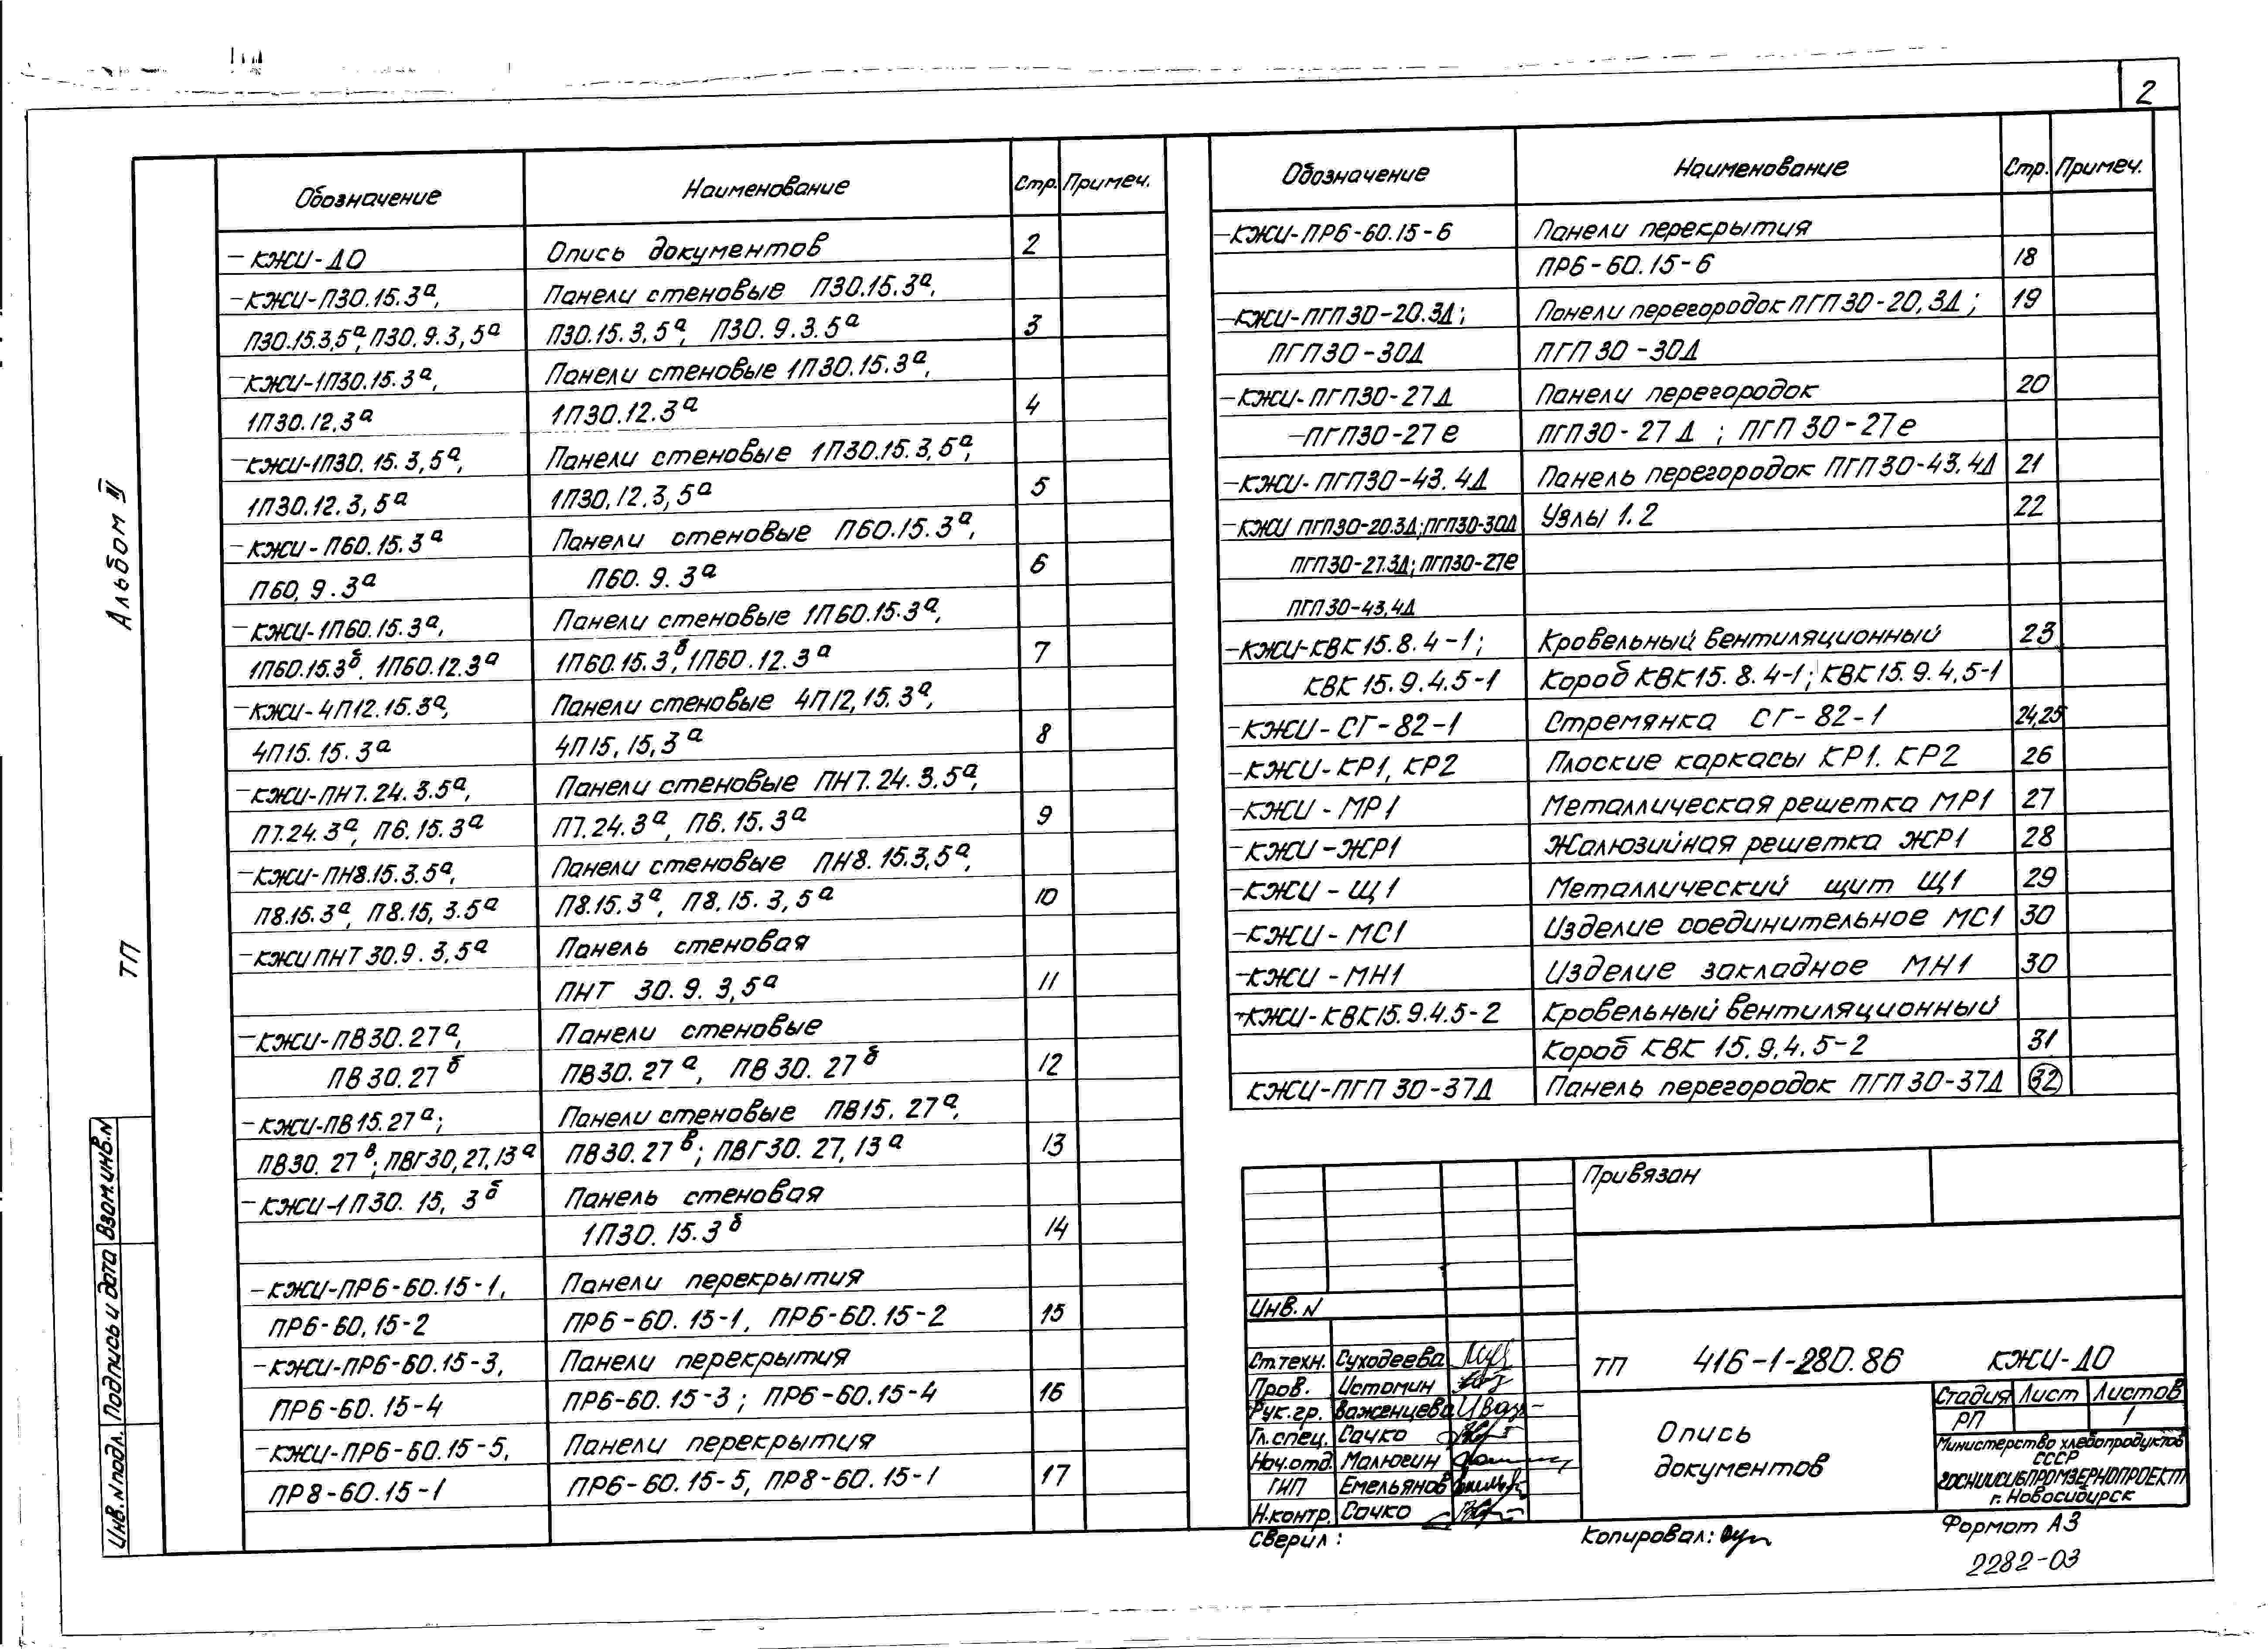 2
Обозначение Наименование Стр. Примеч.
-КЖИ-ДО Опись документов 2
-КЖИ-П30.15.3а, Панели стеновые П30.15.3а,
П30.15.3,5а, П30.9.3,5а П30.15.3,5а, П30.9.3.5а 3
-КЖИ-1П30.15.3а, Панели стеновые 1П30.15.3а,
1П30.12,3а 1П30.12.3а 4
-КЖИ-1П30.15.3,5а, Панели стеновые 1П30.15.3,5а,
1П30.12.3,5а 1П30,12,3,5а 5
-КЖИ-П60.15.3а Панели стеновые П60.15.3а,
П60,9.3а П60.9.3а 6
-КЖИ-1П60.15.3а, Панели стеновые 1П60.15.3а,
1П60.15.3б. 1П60.12.3а 1П60.15.3в, 1П60.12.3а 7
-КЖИ-4П12.15.3а, Панели стеновые 4П12,15.3а,
4П15.15.3а 4П15,15,3а 8
-КЖИ-ПН7.24.3.5а, Панели стеновые ПН7.24.3.5а,
П7.24.3а, П6.15.3а П7.24.3а, П6.15.3а 9
-КЖИ-ПН8.15.3.5а, Панели стеновые ПН8.15.3,5а,
П8.15.3а, П8.15,3.5а П8.15.3а, П8.15.3,5а 10
-КЖИ ПНТ 30.9.3,5а Панель стеновая
ПНТ 30.9.3,5а 11
-КЖИ-ПВ30.27а, Панели стеновые
ПВ30.27б ПВ30.27а, ПВ30.27б 12
-КЖИ-ПВ15.27а; Панели стеновые ПВ15.27а,
ПВ30.27в; ПВГ30,27,13а ПВ30.27в; ПВГ30.27,13а 13
-КЖИ-1П30.15,3б Панель стеновая
1П30.15.3б 14
-КЖИ-ПР6-60.15-1, Панели перекрытия
ПР6-60,15-2 ПР6-60.15-1, ПР6-60.15-2 15
-КЖИ-ПР6-60.15-3, Панели перекрытия
ПР6-60.15-4 ПР6-60.15-3; ПР6-60.15-4 16
-КЖИ-ПР6-60.15-5, Панели перекрытия
ПР8-60.15-1 ПР6-60.15-5, ПР8-60.15-1 17
Обозначение Наименование Стр. Примеч.
-КЖИ-ПР6-60.15-6 Панели перекрытия
ПР6-60.15-6 18
-КЖИ-ПГП30-20.3Д; Панели перегородок ПГП30-20,3Д; 19
ПГП30-30Д ПГП30-30Д
-КЖИ-ПГП30-27Д Панели перегородок 20
-ПГП30-27е ПГП30-27Д; ПГП30-27е
-КЖИ-ПГП30-43.4Д Панель перегородок ПГП30-43.4Д 21
-КЖИ ПГП30-20.3Д; ПГП30-30Д Узлы 1.2 22
ПГП30-27.3Д; ПГП30-27е
ПГП30-43,4Д
-КЖИ-КВК15.8.4-1; Кровельный вентиляционный 23
КВК15.9.4.5-1 Короб КВК15.8.4-1; КВК15.9.4,5-1
-КЖИ-СГ-82-1 Стремянка СГ-82-1 24,25
-КЖИ-КР1, КР2 Плоские каркасы КР1. КР2 26
-КЖИ-МР1 Металлическая решетка МР1 27
-КЖИ-ЖР1 Жалюзийная решетка ЖР1 28
-КЖИ-Щ1 Металлический щит Щ1 29
-КЖИ-МС1 Изделие соединительное МС1 30
-КЖИ-МН1 Изделие закладное МН1 30
-КЖИ-КВК15.9.4.5-2 Кровельный вентиляционный
Короб КВК 15.9,4.5-2 31
КЖИ-ПГП30-37Д Панель перегородок ПГП30-37Д 32
Альбом III
ТП
Взам.инв.N
Подпись и дата
Инв.N подл.
Привязан
Инв.N
Ст.техн. Суходеева
Пров. Истомин
Рук.гр. Важенцева
Гл.спец. Сачко
Нач.отд. Малюгин
ГИП Емельянов
Н.контр. Сачко
ТП 416-1-280.86 КЖИ-ДО
Опись
документов
Стадия Лист Листов
РП 1
Министерство хлебопродуктов
СССР
ГОСНИИСИБПРОМЗЕРНОПРОЕКТ
г. Новосибирск
Сверил:
Копировал:
Формат А3
2282-03